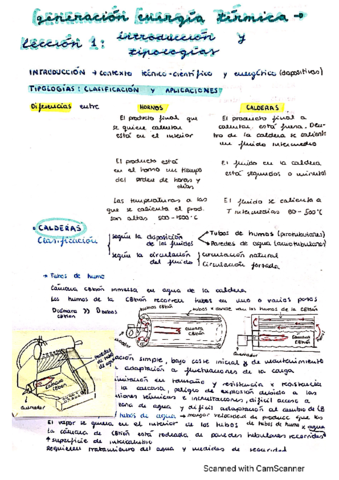 generación energía térmica →
Lección 1: introducción y
tipologías
INTRODUCCIÓN → contexto técnico-científico y energético (diapositivas)
TIPOLOGÍAS: CLASIFICACIÓN Y APLICACIONES
Diferencias entre HORNOS CALDERAS
El producto final que
se quiere calentar
está en el interior
El producto final a
calentar, está fuera. Den-
tro de la caldera se calienta
un fluido intermedio
El producto está
en el horno un tiempo
del orden de horas y
días
El fluido en la caldera
está segundos o minutos
Las temperaturas a las
que se calienta el prod.
son altas 500-1400°C
El fluido se calienta a
T intermedias 80-500°C
CALDERAS
Clasificación
según la disposición
de los fluidos
Tubos de humos (pirotubulares)
Paredes de agua (acuotubulares)
según la circulación
del fluido
circulación natural
circulación forzada
→ Tubos de humo
Cámara CBtión inmersa en agua de la caldera
Los humos de la CBtión recorren tubos en uno o varios pasos
quemador
simple, bajo coste inicial y de mantenimiento
adaptación a fluctuaciones de la carga
en tamaño y resistencia
la carcasa, peligro de explosión debido a las
tensiones térmicas e incrustaciones, difícil acceso a
de agua, y difícil adaptación al cambio de CB
tubos de agua → mayor velocidad de produce que los
El vapor se genera en el interior de los tubos de humo x agua
La cámara de CBtión está rodeada de paredes tubulares recorridas
↑ superficie de intercambio
Requieren tratamiento del agua y medidas de seguridad
Scanned with CamScanner